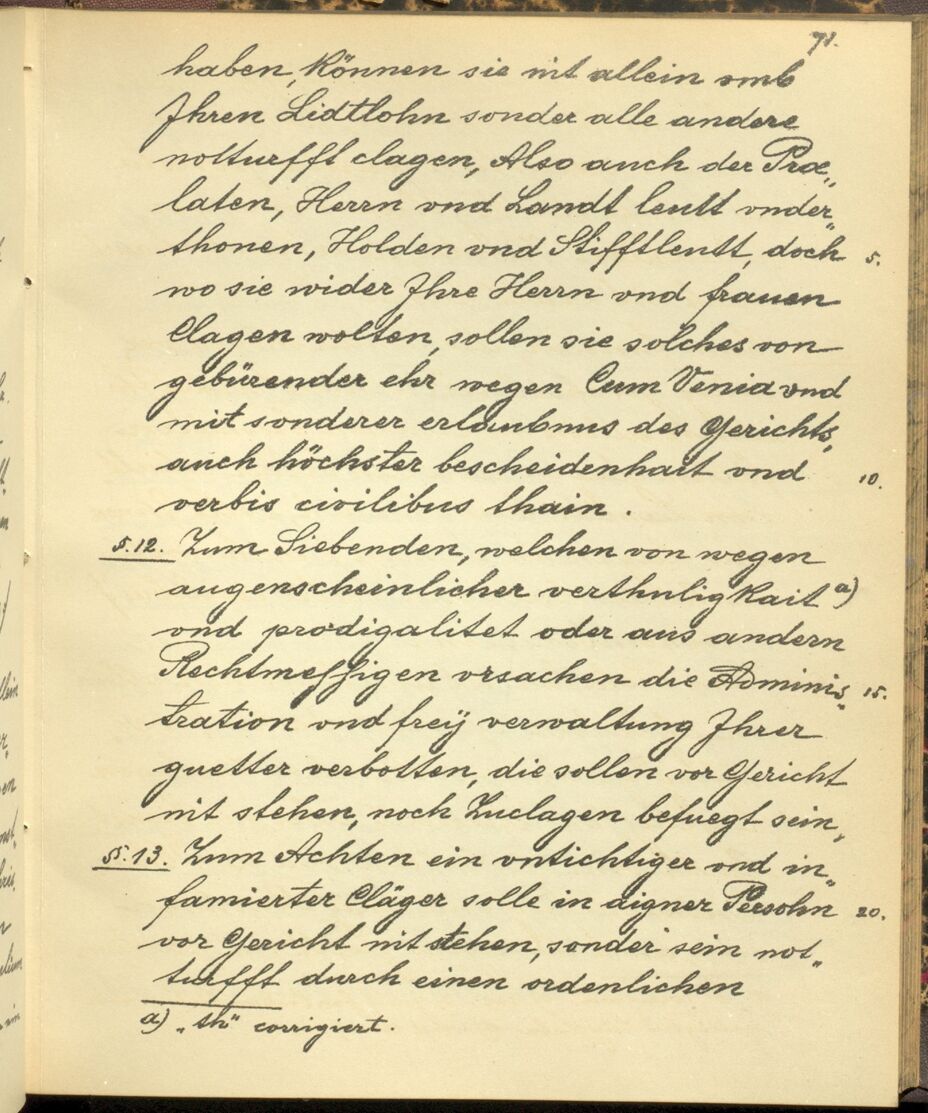 71.
haben, können sie nit allein vmb
Ihren Lidtlohn sonder alle andere
notturfft clagen, Also auch der Præ„
laten, Herrn vnd Landt leutt vnder„
thonen, Holden vnd Stifftleutt, doch 5.
wo sie wider Ihre Herrn vnd frauen
Clagen wolten, sollen sie solches von
gebürender ehr wegen Cum Venia vnd
mit sonderer erlaubnus des Gerichts,
auch höchster bescheidenhait vnd 10.
verbis civilibus thain.
§.12. Zum Siebenden, welchen von wegen
augenscheinlicher verthuligkait a)
vnd prodigalitet oder aus andern
Rechtmessigen vrsachen die Adminis„ 15.
tration vnd freÿ verwaltung Ihrer
guetter verbotten, die sollen vor Gericht
nit stehen, noch Zuclagen befuegt sein,
§.13. Zum Achten ein vntichtiger vnd in„
famierter Cläger solle in aigner Persohn 20.
vor Gericht nit stehen, sonder sein not„
turfft durch einen ordenlichen
a) „th“ corrigiert.